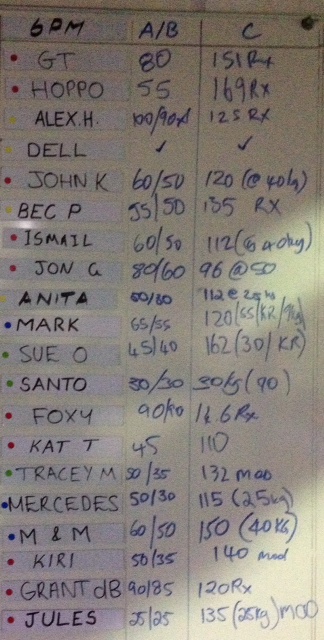 6PM A/B C
GT 80 151 Rx
HOPPO 55 169 Rx
ALEX.H. 100/90 125 RX
DELL ✓ ✓
JOHN K 60/50 120 (@ 40kg)
BEC P 55/50 135 RX
ISMAIL 60/50 112 (@ 40kg)
JON G 80/60 96 @ 50
ANITA 112 @
MARK 65/55 120
SUE O 45/40 162 (30/KR)
SANTO 30/30 30kg (90)
FOXY Rx
KAT T 45 110
TRACEY M 50/35 132 mod
MERCEDES 50/30 115 (25kg)
M & M 60/50 150 (40KG)
KIRI 50/35 140 mod
GRANT dB 90/85 120 Rx
JULES 135 (25kg) MOD